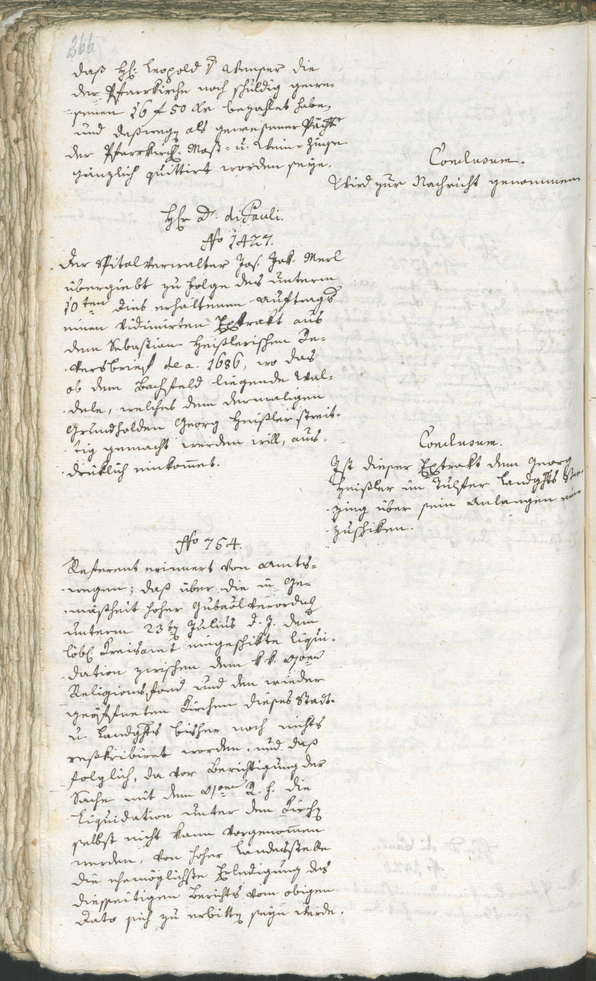 266
daß Hr: Leopold v Menser die
der Pfarrkirche noch schuldig gewe-
senen 16 f 50 Xr bezahlet habe,
und daßwegen als gewesener Pächter
der Pfarrkirch: Most- u. Wein-Zinse
gänzlich quittirt worden seye.
Conclusum.
Wird zur Nachricht genommen
Hr D. di Pauli.
No 1427.
Der Spitalverwalter Jos. Jak. Merl
übergiebt zu Folge des unterm
10ten dies erhaltenen Auftrags
einen vidimirten Extrakt aus
dem Sebastian Heißlerischen Re-
versbrief de a. 1686, wo das
ob dem Bachfeld liegende Wal-
dele, welches dem dermaligen
Grundholden Georg Heißler strit-
tig gemacht werden will, aus-
drüklich einkommet.
Conclusum.
Ist dieser Extrakt dem Georg
Heißler im Tulfer Landghts
zing über sein Anlangen
zuschiken.
No 754.
Referent erinnert von Amts-
wegen; daß über die in Ge-
mäßheit hoher Gubernlverordng
unterm 23ten Julius d. J. dem
löbl Kreisamt eingeschikte Liqui-
dation zwischen dem k k
Religionsfond und den wieder
geöffneten Kirchen dieses Stadt-
u. Landghts bisher noch nichts
reskribiret worden, und daß
folglich, da vor Berichtigung der
Sache mit dem R. F. die
Liquidation unter den Kirchen
selbst nicht kann vorgenommen
werden, von hoher Landesstelle
die ehemöglichste Erledigung des
diesseitigen Berichts vom obigen
Dato sich zu erbitten seyn werde.